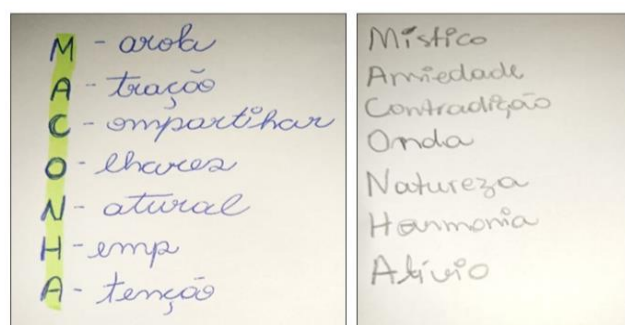 M - arola
A - tração
C - ompartihar
O - lhares
N - atural
H - emp
A - tenção
Místico
Amiedade
Contradição
Onda
Natureza
Harmonia
Alívio